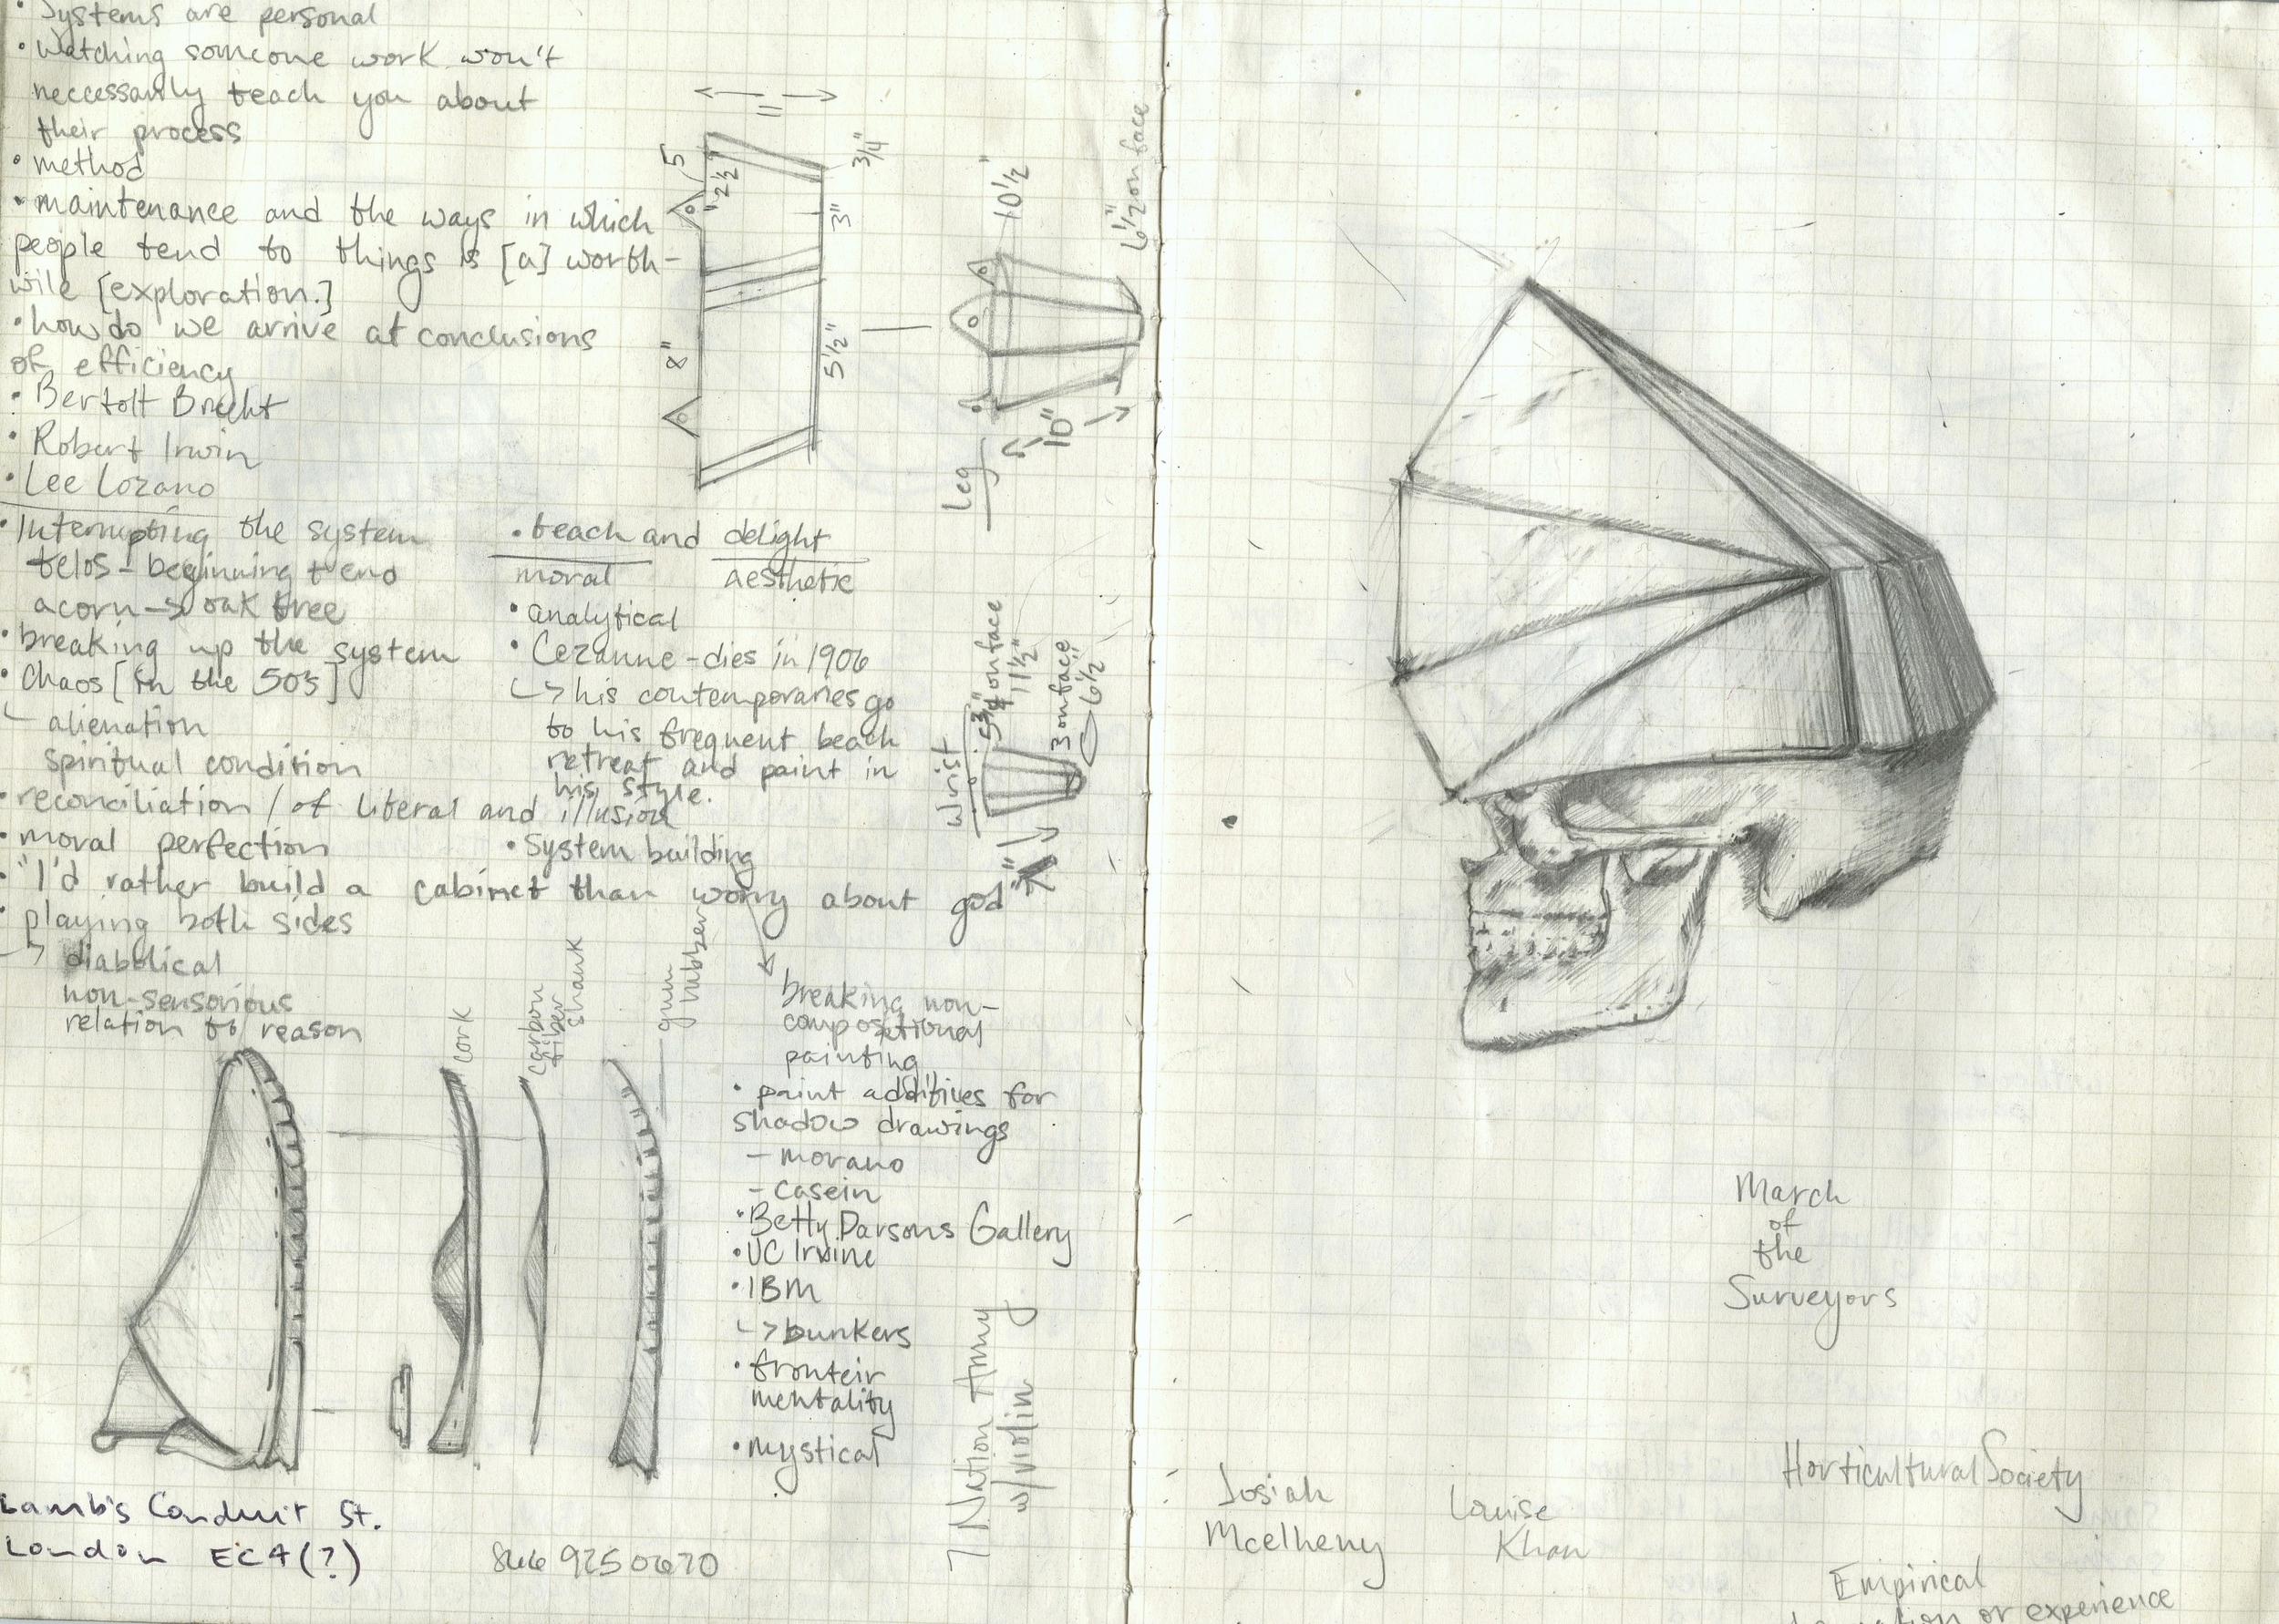 • Systems are personal
• Watching someone work won't
neccessarily teach you about
their process
• method
• maintenance and the ways in which
people tend to things is [a] worth-
wile [exploration.]
• how do we arrive at conclusions
of efficiency
• Bertolt Brecht
• Robert Irwin
• Lee Lozano
• Interrupting the system
telos - beginning + end
acorn → oak tree
• breaking up the system
• Chaos [in the 50's]
alienation
spiritual condition
• reconciliation / of literal and illusion
• moral perfection
• "I'd rather build a cabinet than worry about god"
• playing both sides
→ diabolical
non-sensorious
relation to reason
• teach and delight
moral aesthetic
• analytical
• Cezanne - dies in 1906
↳ his contemporaries go
to his frequent beach
retreat and paint in
his style.
• System building
breaking non-
compositional
painting
• paint additives for
shadow drawings
- morano
- casein
• Betty Parsons Gallery
• UC Irvine
• IBM
↳ bunkers
• fronteir
mentality
• mystical
11"
5
2 1/2"
3/4"
3"
8"
5 1/2"
10 1/2"
6 1/2 on face
10"
Leg
Wrist
5 3/4" on face
11 1/2"
3 on face
6 1/2"
7"
cork
carbon
fiber
shank
gum
rubber
7 Nation Army
w/ violin
Lamb's Conduit St.
London EC4(?)
646 925 0670
March
of
the
Surveyors
Horticultural Society
Josiah
Mcelheny
Louise
Khan
Empirical
or experience